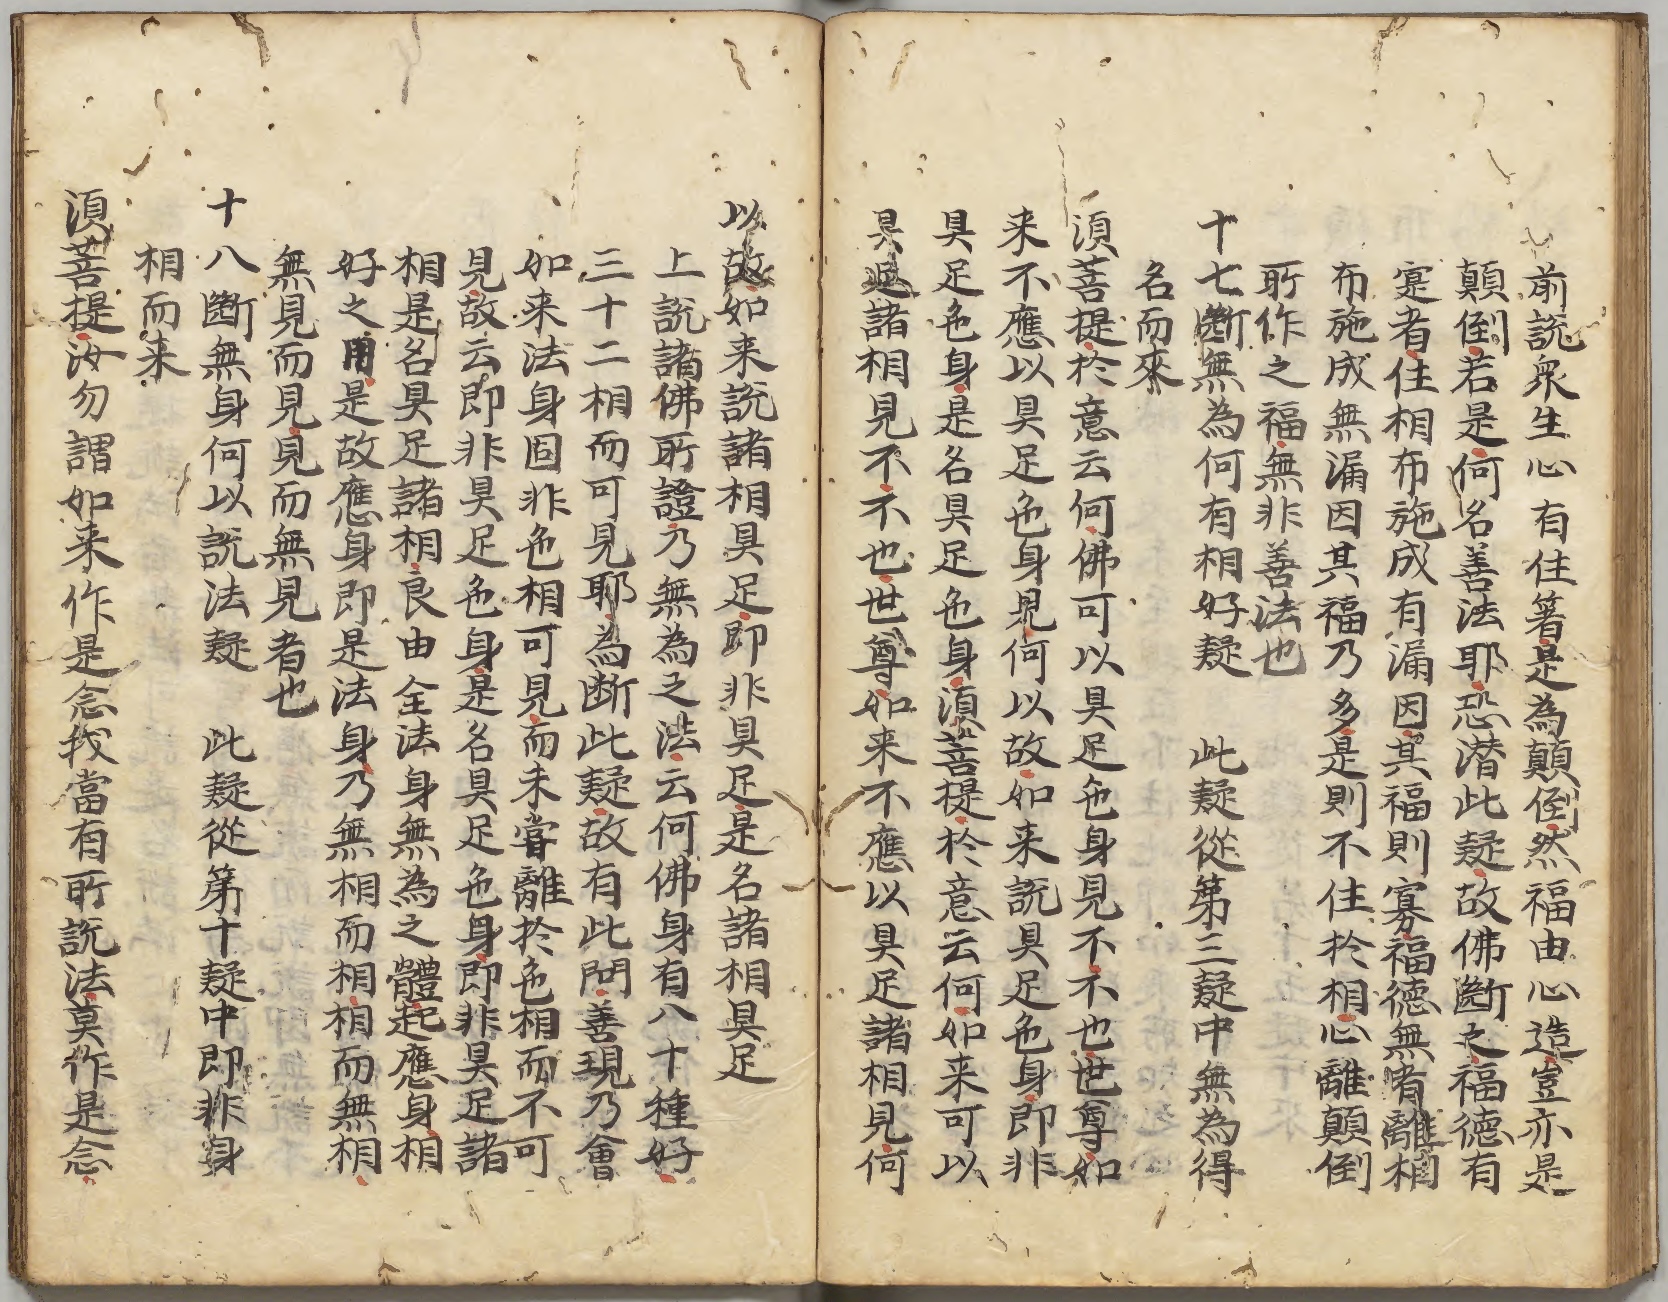 前説衆生心有住著是為顛倒然福由心造豈亦是
顛倒若是何名善法耶恐潜此疑故佛斷之福德有
寔者住相布施成有漏因其福則寡福德無者離相
布施成無漏因其福乃多是則不住於相心離顛倒
所作之福無非善法也
十七斷無為何有相好疑　此疑從第三疑中無為得
名而來
須菩提於意云何佛可以具足色身見不不也世尊如
来不應以具足色身見何以故如来説具足色身即非
具足色身是名具足色身須菩提於意云何如来可以
具足諸相見不不也世尊如来不應以具足諸相見何
以故如来説諸相具足即非具足是名諸相具足
上説諸佛所證乃無為之法云何佛身有八十種好
三十二相而可見耶為断此疑故有此問善現乃會
如来法身固非色相可見而未嘗離於色相而不可
見故云即非具足色身是名具足色身即非具足諸
相是名具足諸相良由全法身無為之體起應身相
好之用是故應身即是法身乃無相而相相而無相
無見而見見而無見者也
十八斷無身何以説法疑　此疑從第十疑中即非身
相而来
須菩提汝勿謂如来作是念我當有所説法莫作是念